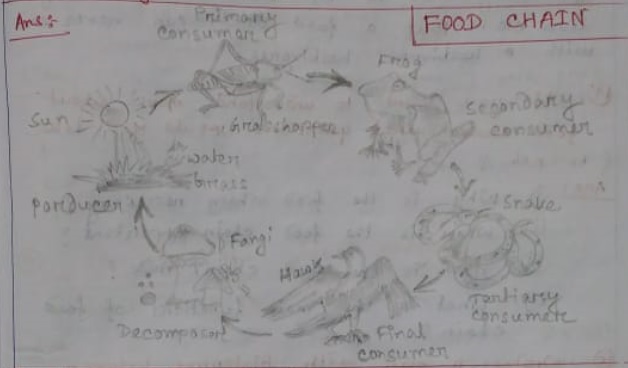 Ans:-
FOOD CHAIN
Primary
consumer
Frog
Sun
Grasshopper
Secondary
consumer
water
Grass
Porducer
Snake
Fangi
Hawk
Tartiary
consumer
Decomposer
Final
consumer